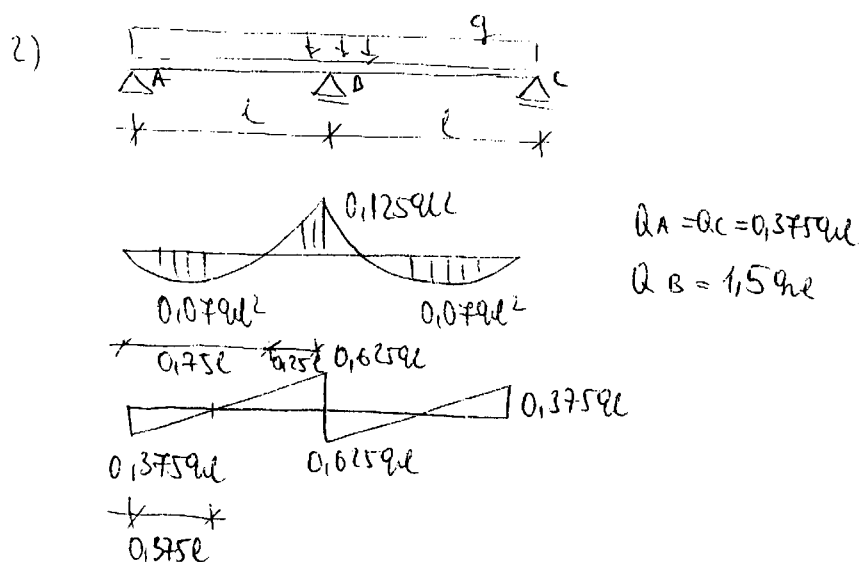 2)
q
A B C
l l
0,125ql²
QA = QC = 0,375ql
QB = 1,5ql
0,07ql² 0,07ql²
0,75l 0,25l 0,625ql
0,375ql
0,375ql 0,625ql
0,375l